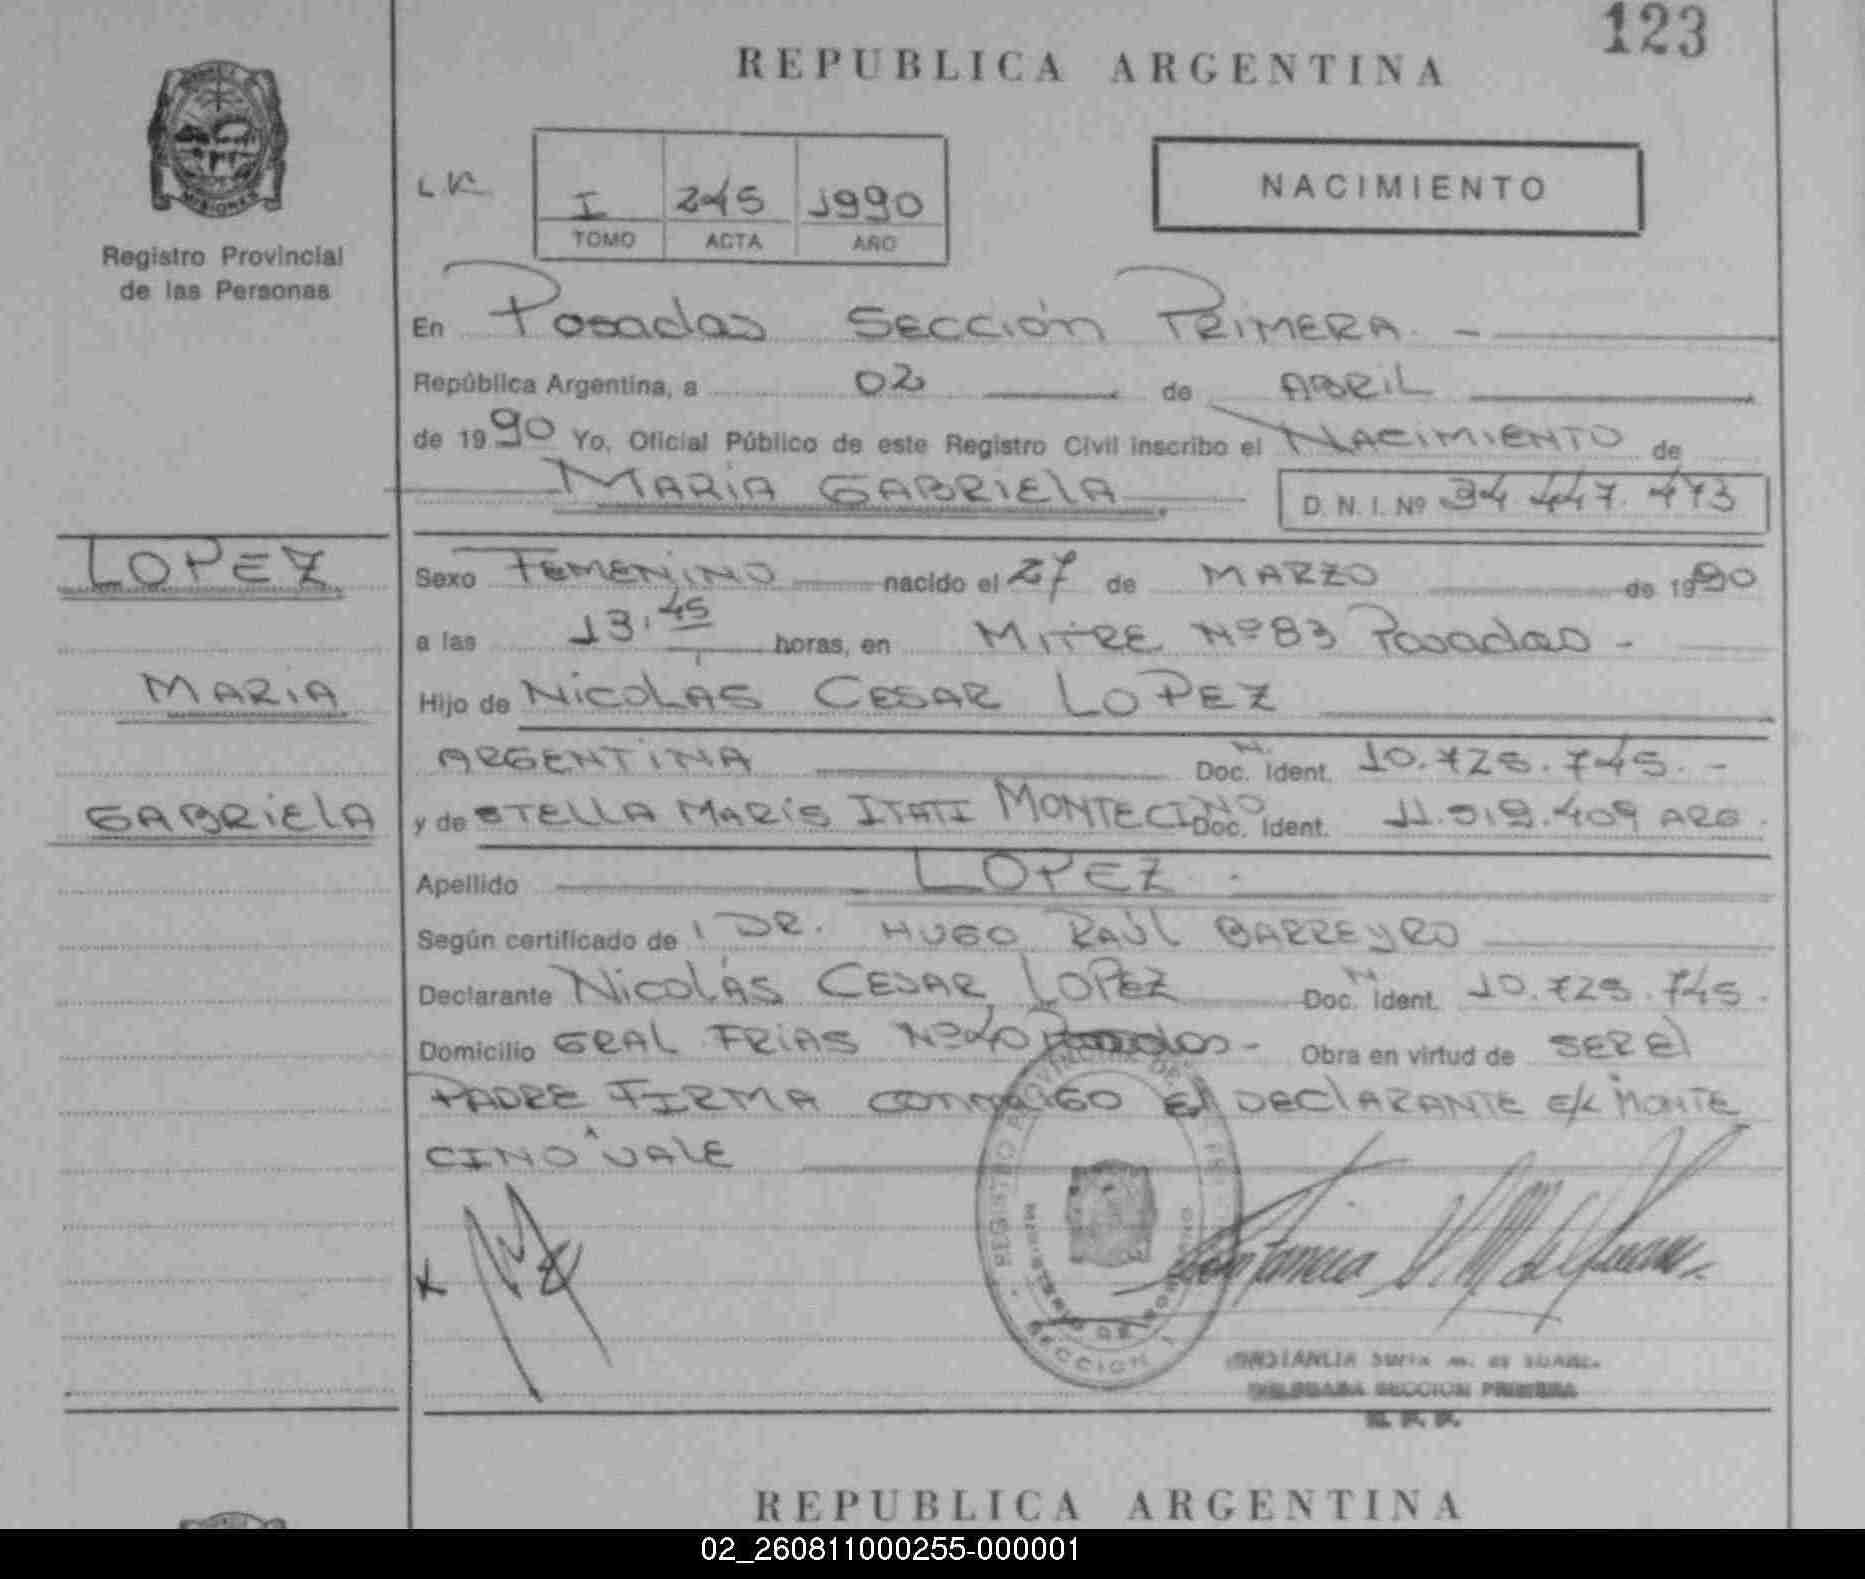 123
REPUBLICA ARGENTINA
MISIONES
Registro Provincial
de las Personas
I 245 1990
TOMO ACTA AÑO
NACIMIENTO
En Posadas Sección Primera -
República Argentina, a 02 de ABRIL
de 1990 Yo, Oficial Público de este Registro Civil inscribo el NACIMIENTO de
MARIA GABRIELA D. N. I. Nº 34.447.473
LOPEZ
MARIA
GABRIELA
Sexo FEMENINO nacido el 27 de MARZO de 1990
a las 13,45 horas, en MITRE Nº 83 Posadas -
Hijo de NICOLAS CESAR LOPEZ
ARGENTINA Doc. Ident. 10.725.745. -
y de STELLA MARIS ITATI MONTECINO Doc. Ident. 11.519.409 ARG.
Apellido LOPEZ.
Según certificado de DR. HUGO RAÚL BARREYRO
Declarante NICOLÁS CESAR LOPEZ Doc. Ident. 10.725.745.
Domicilio GRAL FRIAS Nº 40 Posadas - Obra en virtud de SER El
PADRE FIRMA CONMIGO El DEClARANTE E/L MONTE
CINO VALE
REGISTRO PROVINCIAL DE
SECCION 1
DELEGADA SECCION PRIMERA
R. P. P.
REPUBLICA ARGENTINA
02_260811000255-000001